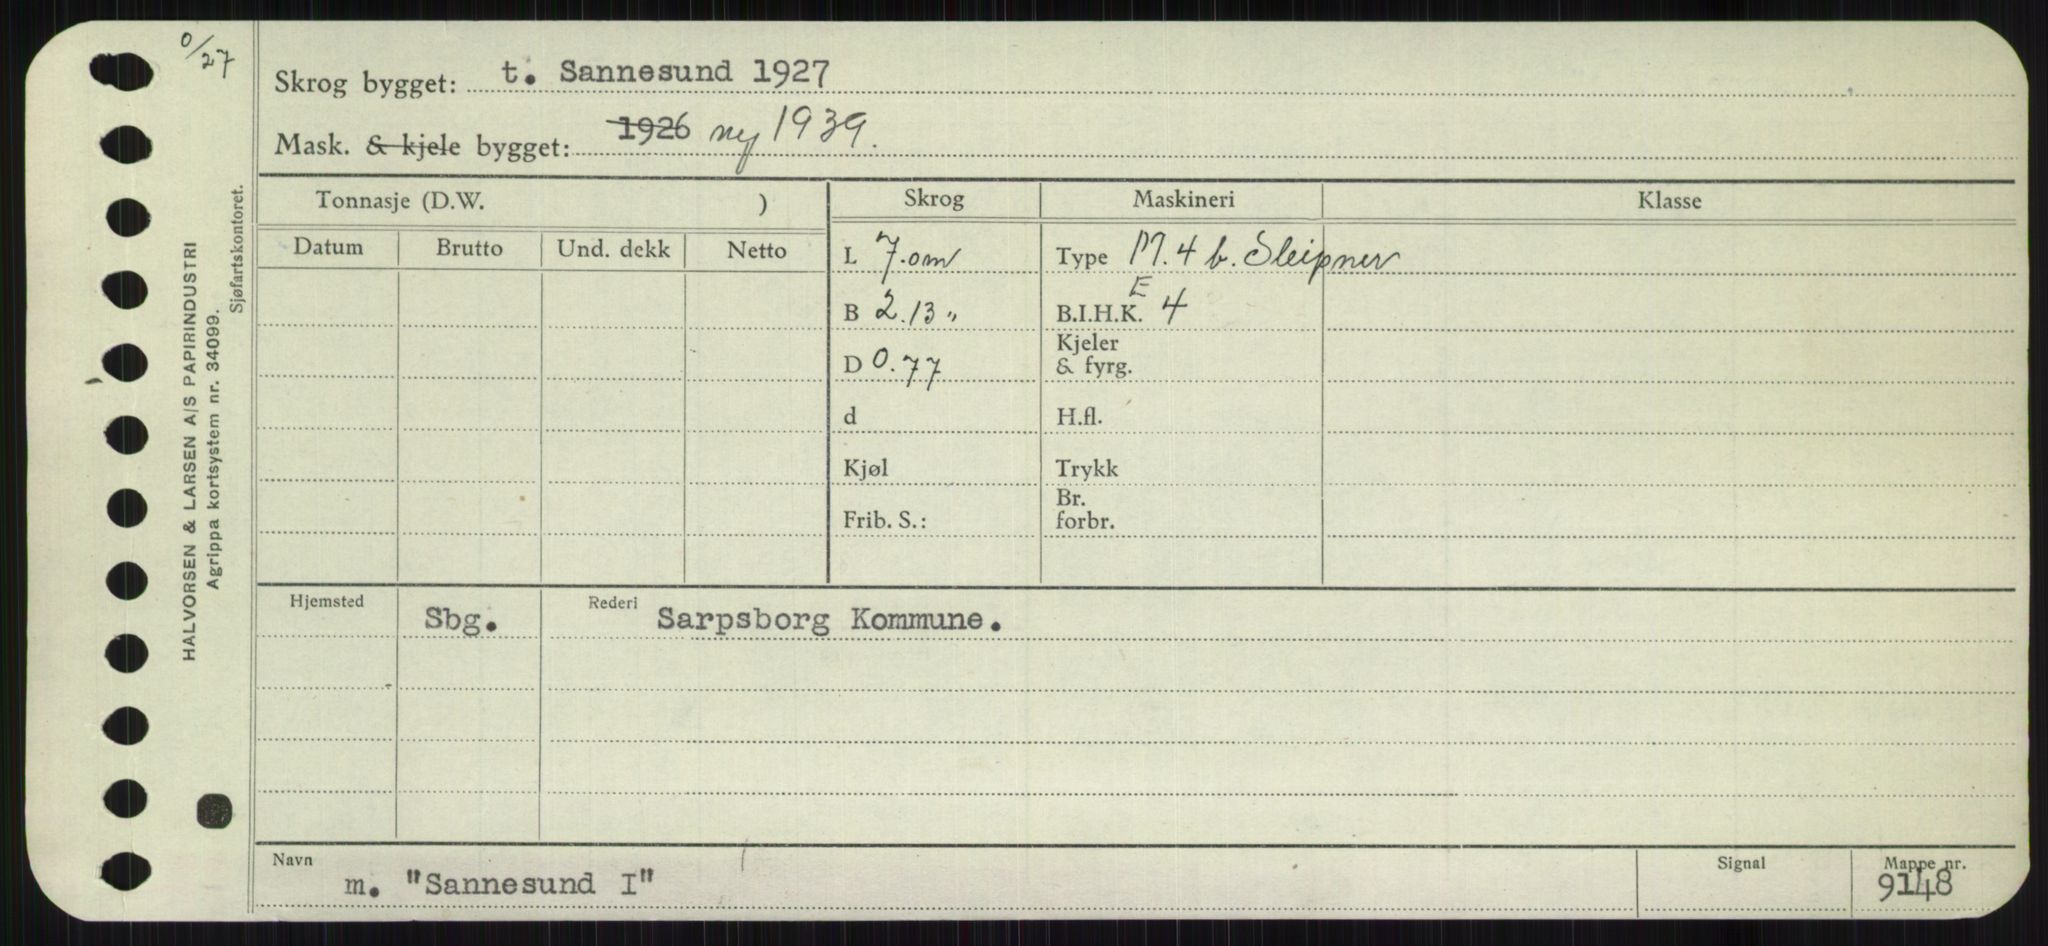 0/27
Skrog bygget: t. Sannesund 1927
Mask. & kjele bygget: 1926 ny 1939.
Tonnasje (D.W. )
Skrog
Maskineri
Klasse
Datum
Brutto
Und. dekk
Netto
L 7.0m
Type M. 4 b. Sleipner
B 2.13 "
E
B.I.H.K. 4
D 0.77
Kjeler
& fyrg.
d
H.fl.
Kjøl
Trykk
Frib. S.:
Br.
forbr.
Hjemsted
Sbg.
Rederi
Sarpsborg Kommune.
Navn
m. "Sannesund I"
Signal
Mappe nr.
9148
HALVORSEN & LARSEN A/S PAPIRINDUSTRI
Agrippa kortsystem nr. 34099.
Sjøfartskontoret.